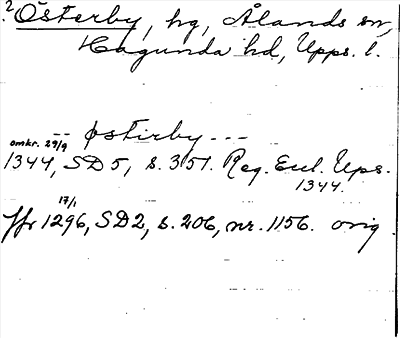 ? Österby, hg, Ålands sn,
Hagunda hd, Upps. l.
-- østirby ---
omkr. 29/9
1344, SD 5, s. 315. Reg. Eccl. Ups.
1344.
17/1
Jfr 1296, SD 2, s. 206, nr. 1156. orig